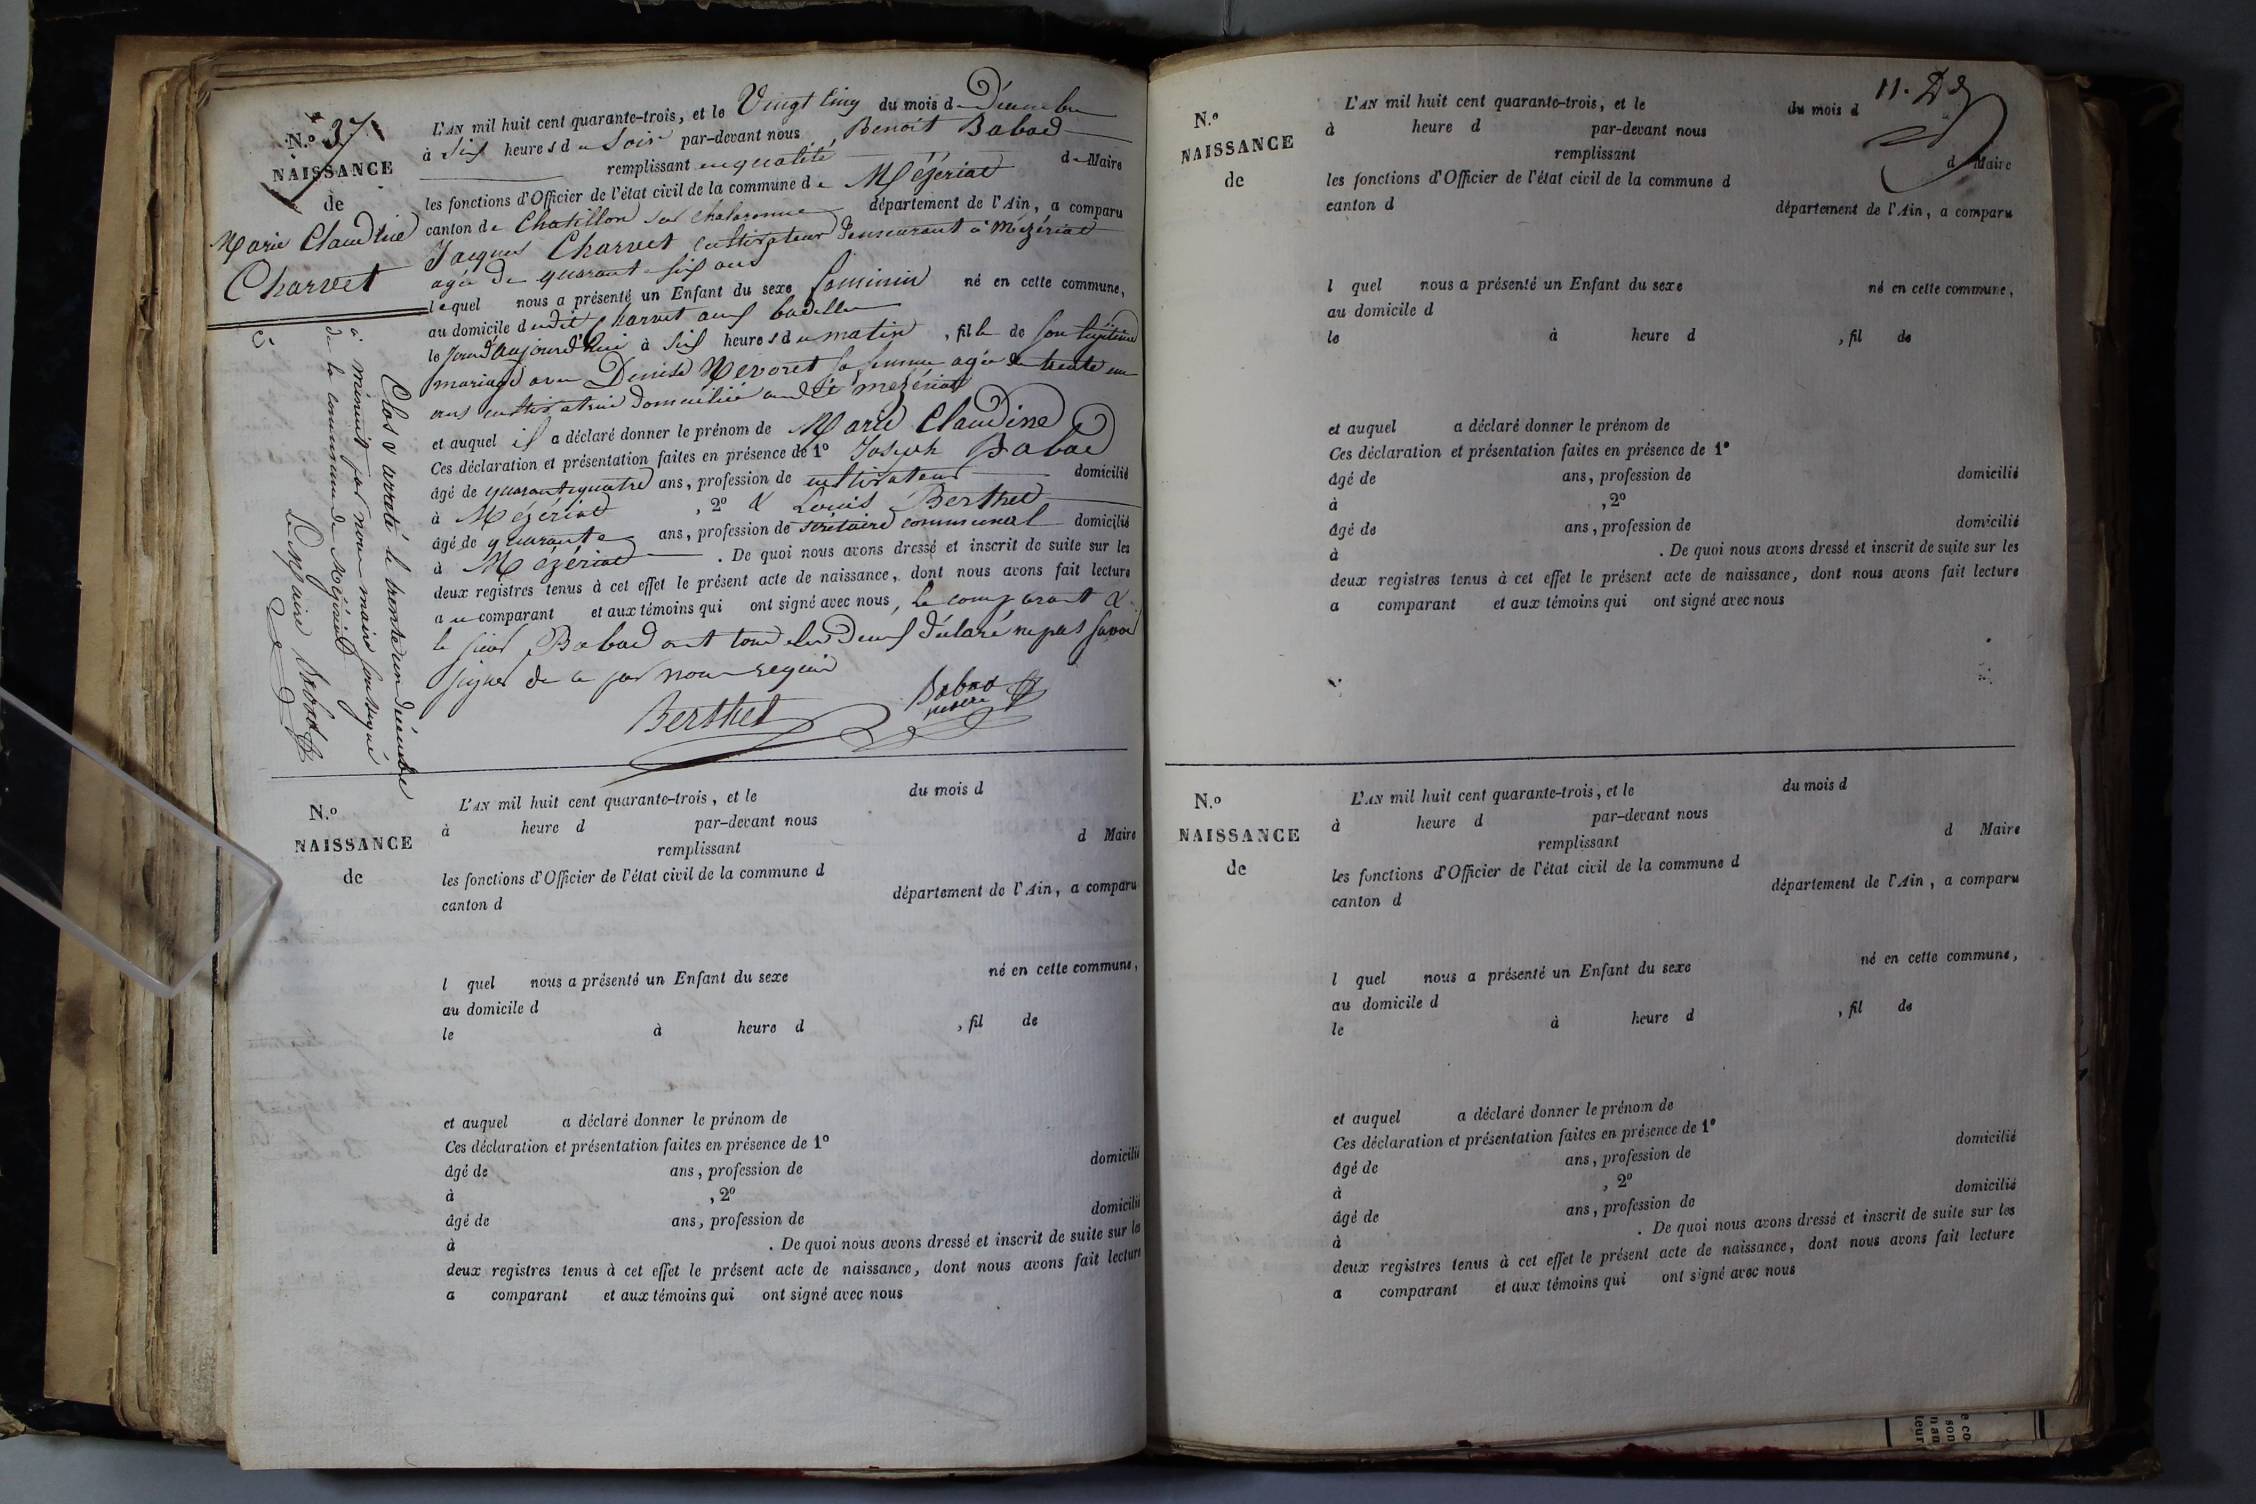 N.º 37
NAISSANCE
de
Marie Claudine
Charvet
C.
L'AN mil huit cent quarante-trois, et le Vingt Cinq du mois de Décembre
à Six heures du Soir par-devant nous Benoit Babad
remplissant en qualité de Maire
les fonctions d'Officier de l'état civil de la commune de Mézériat
canton de Chatillon sur chalaronne département de l'Ain, a comparu
Jacques Charvet cultivateur demeurant à Mézériat
agé de quarant six ans
lequel nous a présenté un Enfant du sexe féminin né en cette commune,
au domicile dudit Charvet aux badelles
le jourd'aujourd'hui à Six heures du matin, fille de son légitime
mariage avec Denise Nevoret sa femme agée de trente un
ans cultivatrice domiciliée audit mézériat
et auquel il a déclaré donner le prénom de Marie Claudine
Ces déclaration et présentation faites en présence de 1º Joseph Babad
âgé de quarantequatre ans, profession de cultivateur domicilié
à Mézériat, 2º & Louis Berthet
âgé de quarante ans, profession de secrétaire communal domicilié
à Mézériat. De quoi nous avons dressé et inscrit de suite sur les
deux registres tenus à cet effet le présent acte de naissance, dont nous avons fait lecture
au comparant et aux témoins qui ont signé avec nous, le comparant &
le sieur Babad ont tous les deux déclaré ne pas savoir
signer de ce par nous requis
Berthet
Babad
maire
Clos & arreté le trente un décembre
à minuit par nous maire soussigné
de la commune de Mézériat
Le Maire Babad
N.º
NAISSANCE
de
L'AN mil huit cent quarante-trois, et le du mois d
à heure d par-devant nous
remplissant d Maire
les fonctions d'Officier de l'état civil de la commune d
canton d département de l'Ain, a comparu
l quel nous a présenté un Enfant du sexe né en cette commune,
au domicile d
le à heure d , fil de
et auquel a déclaré donner le prénom de
Ces déclaration et présentation faites en présence de 1º
âgé de ans, profession de domicilié
à , 2º
âgé de ans, profession de domicilié
à . De quoi nous avons dressé et inscrit de suite sur les
deux registres tenus à cet effet le présent acte de naissance, dont nous avons fait lecture
a comparant et aux témoins qui ont signé avec nous
11.
N.º
NAISSANCE
de
L'AN mil huit cent quarante-trois, et le du mois d
à heure d par-devant nous
remplissant d Maire
les fonctions d'Officier de l'état civil de la commune d
canton d département de l'Ain, a comparu
l quel nous a présenté un Enfant du sexe né en cette commune,
au domicile d
le à heure d , fil de
et auquel a déclaré donner le prénom de
Ces déclaration et présentation faites en présence de 1º
âgé de ans, profession de domicilié
à , 2º
âgé de ans, profession de domicilié
à . De quoi nous avons dressé et inscrit de suite sur les
deux registres tenus à cet effet le présent acte de naissance, dont nous avons fait lecture
a comparant et aux témoins qui ont signé avec nous
N.º
NAISSANCE
de
L'AN mil huit cent quarante-trois, et le du mois d
à heure d par-devant nous
remplissant d Maire
les fonctions d'Officier de l'état civil de la commune d
canton d département de l'Ain, a comparu
l quel nous a présenté un Enfant du sexe né en cette commune,
au domicile d
le à heure d , fil de
et auquel a déclaré donner le prénom de
Ces déclaration et présentation faites en présence de 1º
âgé de ans, profession de domicilié
à , 2º
âgé de ans, profession de domicilié
à . De quoi nous avons dressé et inscrit de suite sur les
deux registres tenus à cet effet le présent acte de naissance, dont nous avons fait lecture
a comparant et aux témoins qui ont signé avec nous